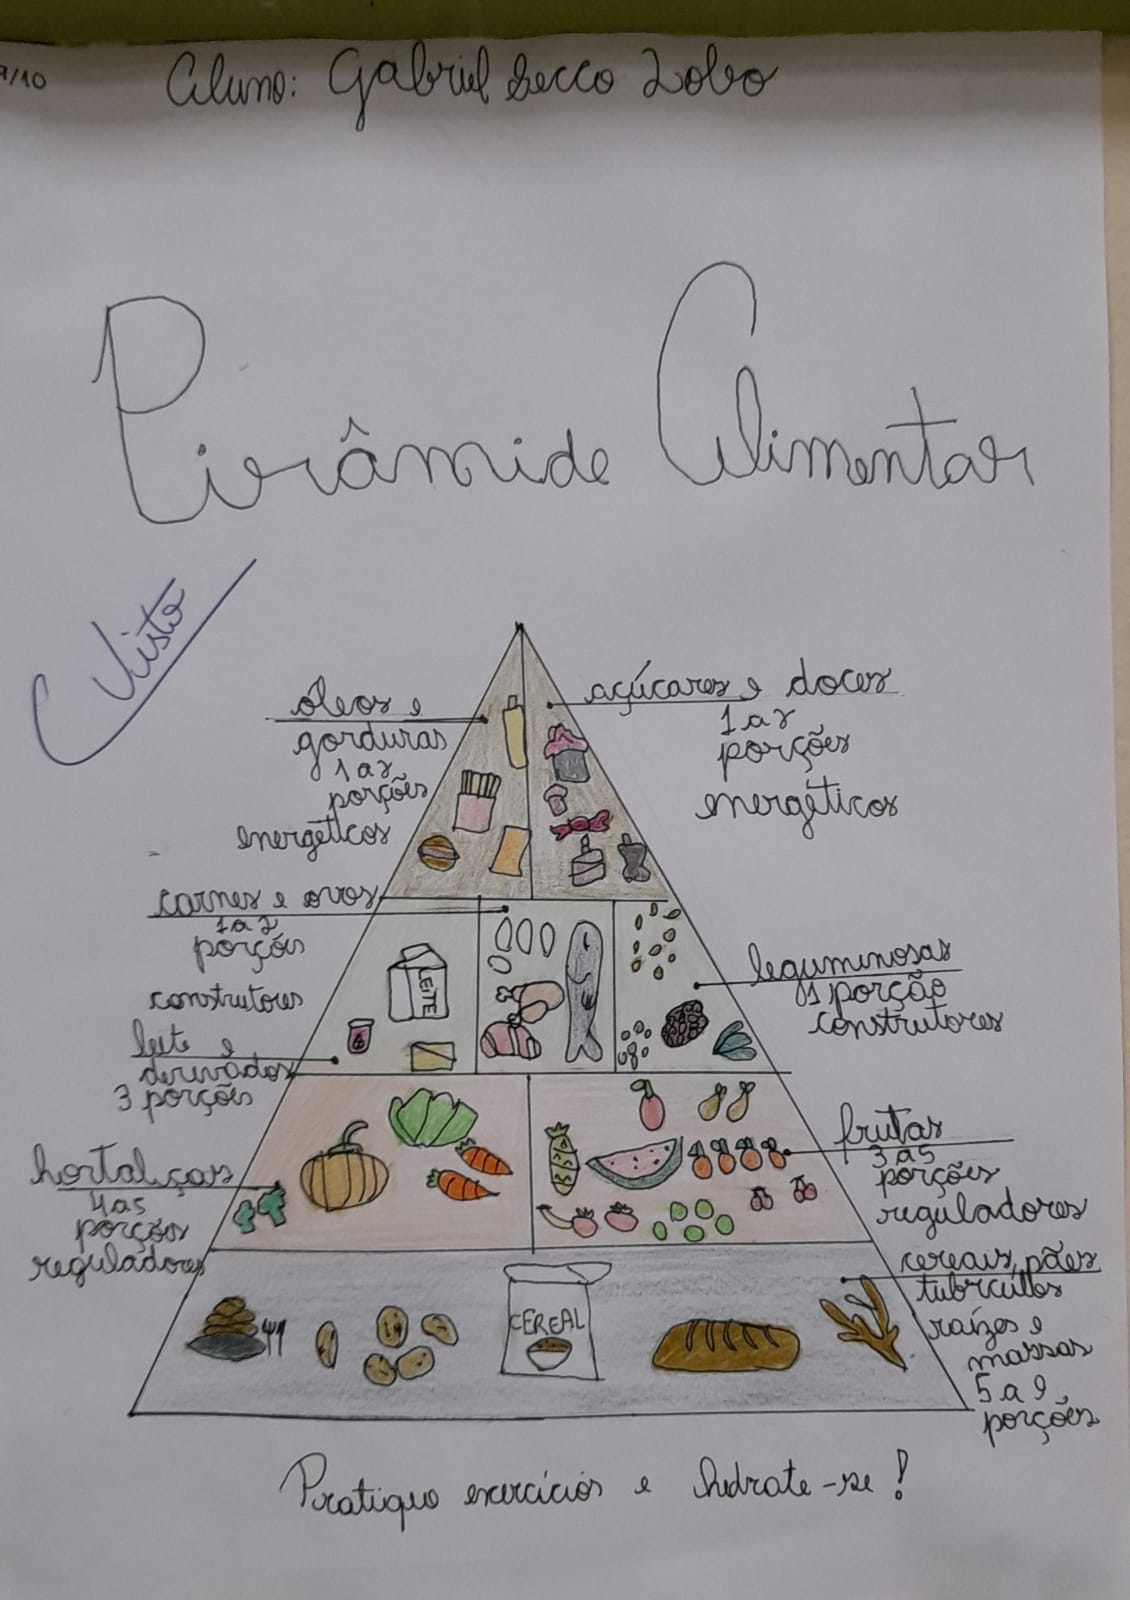 Aluno: Gabriel Secco Lobo
Pirâmide Alimentar
Visto
óleos e
gorduras
1 a 2
porções
energéticos
açúcares e doces
1 a 2
porções
energéticos
carnes e ovos
1 a 2
porções
construtores
LEITE
leguminosas
1 porção
construtores
leite e
derivados
3 porções
hortaliças
4 a 5
porções
reguladores
frutas
3 a 5
porções
reguladores
CEREAL
cereais, pães
tubrcúllos
raízes e
massas
5 a 9
porções
Pratique exercícios e hidrate-se!